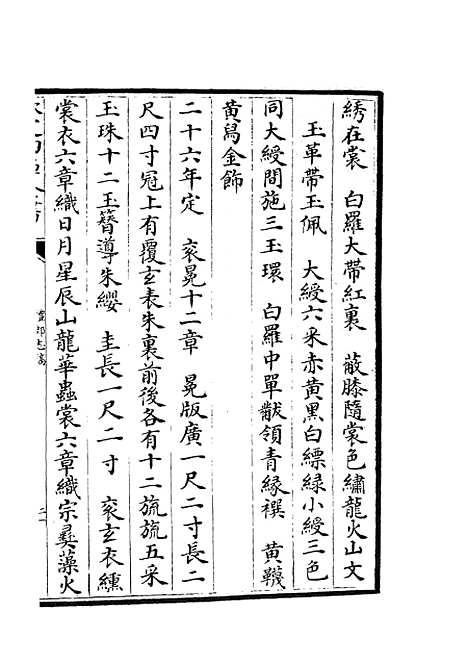 綉在裳　白羅大帶紅裏　蔽膝隨裳色繡龍火山文
玉革帶玉佩　大綬六采赤黃黑白縹緑小綬三色
同大綬間施三玉環　白羅中單黻領青緣襈　黃韈
黃舃金飾
二十六年定　衮冕十二章　冕版廣一尺二寸長二
尺四寸冠上有覆玄表朱裏前後各有十二旒旒五采
玉珠十二玉簪導朱纓　圭長一尺二寸　衮玄衣纁
裳衣六章織日月星辰山龍華蟲裳六章織宗彝藻火